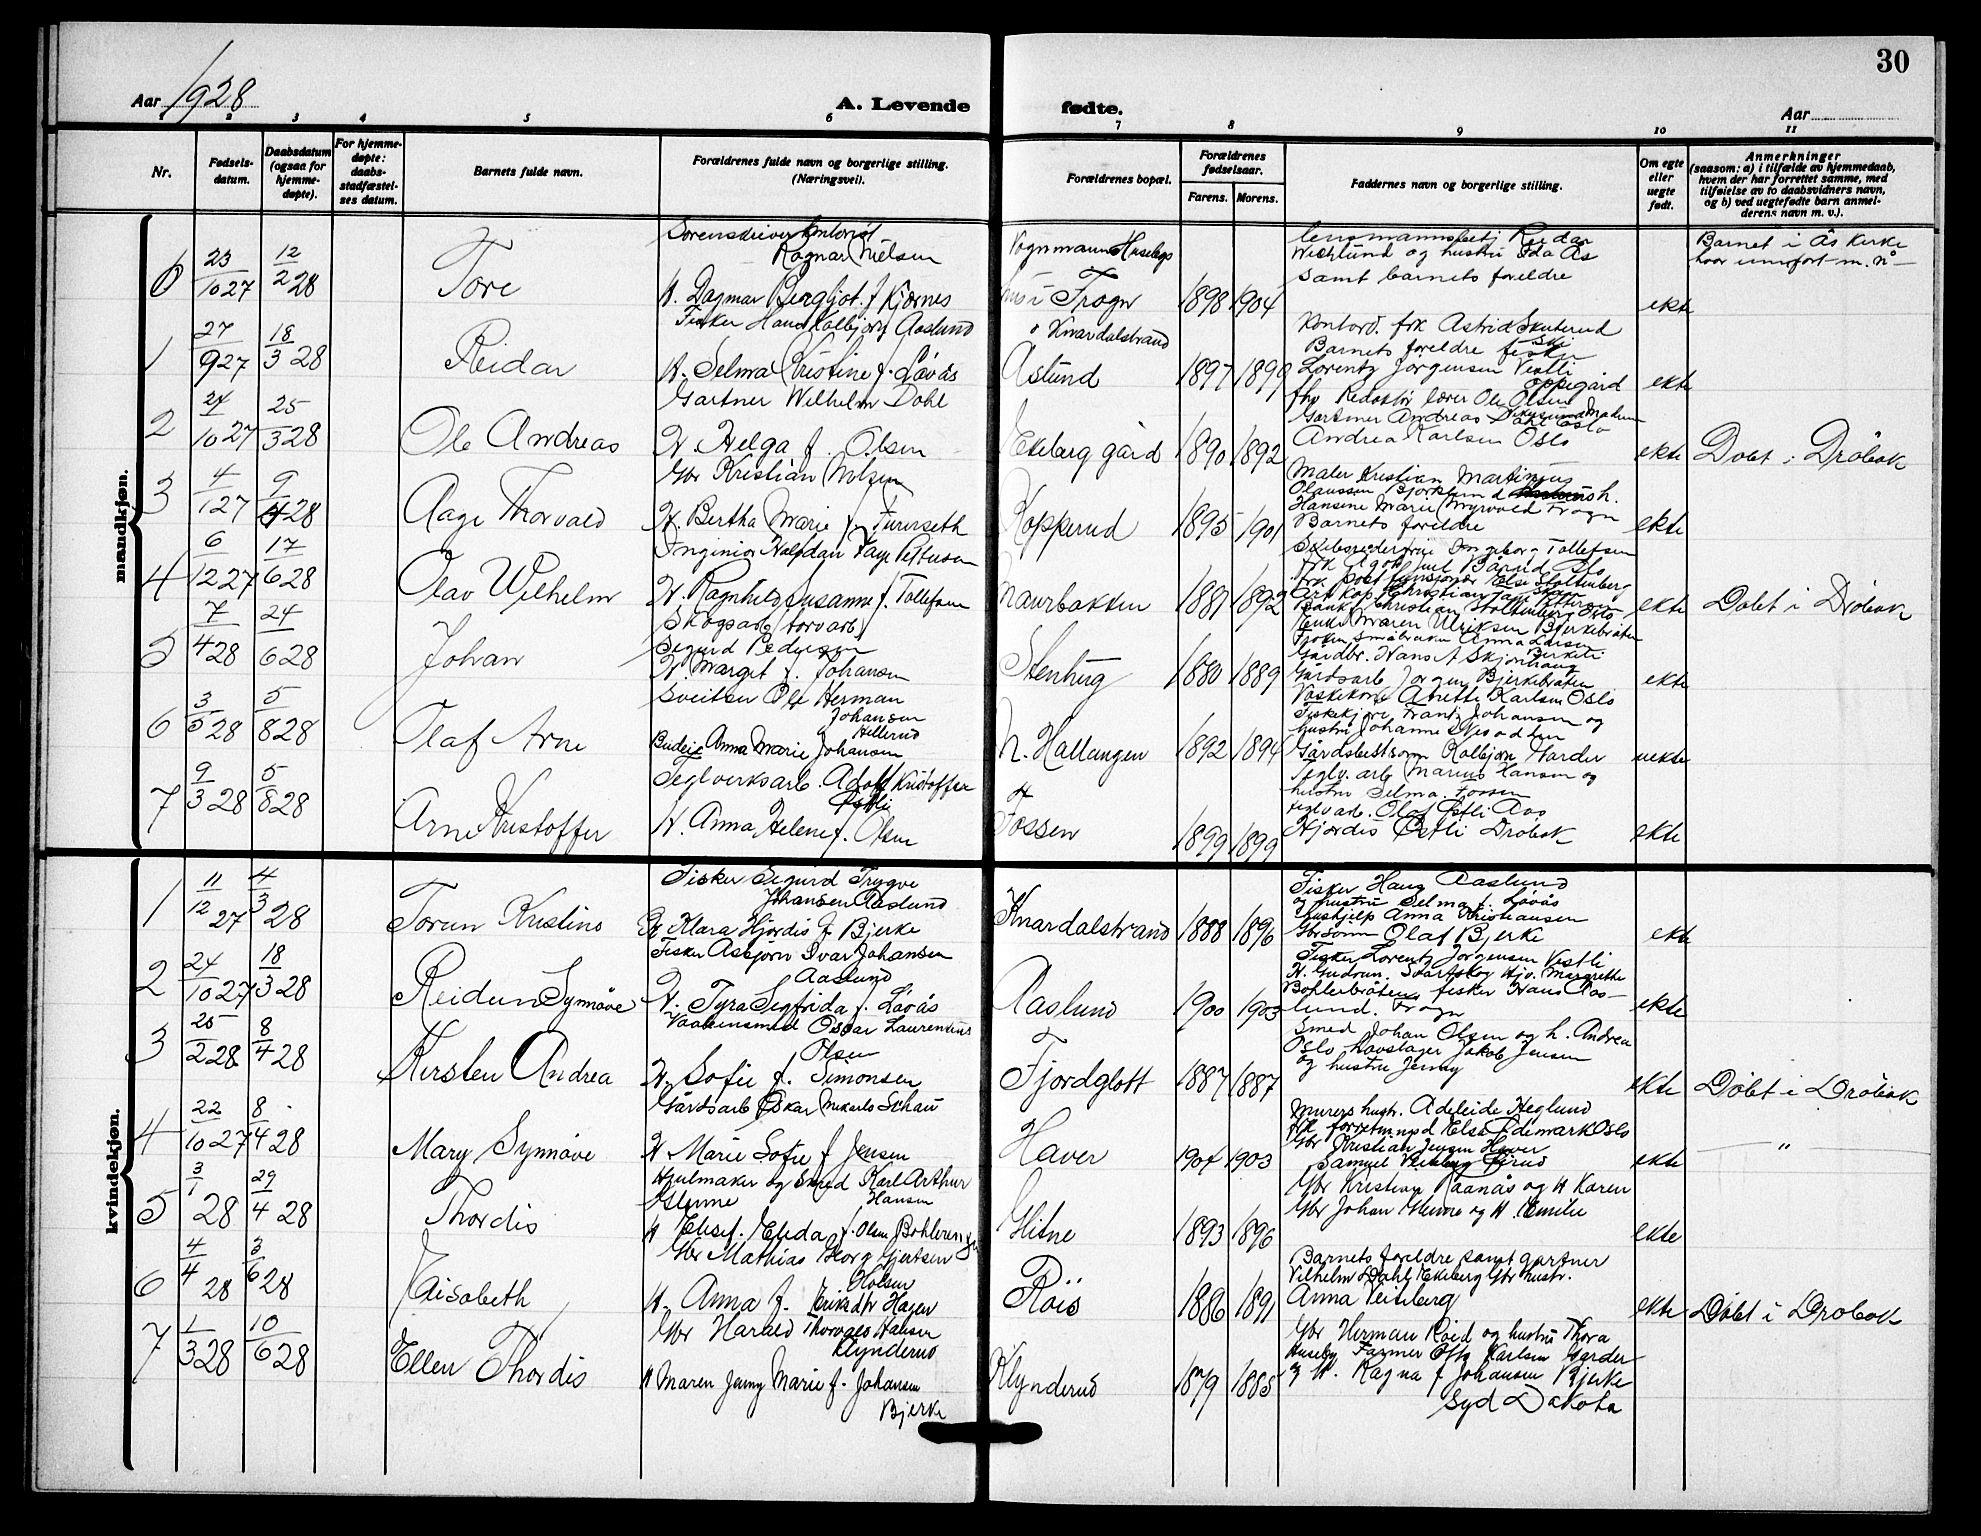 30
Aar 1928
A. Levende fødte.
Aar
1 2 3 4 5 6 7 8 9 10 11
Nr.
Fødsels-
datum.
Daabsdatum
(ogsaa for
hjemme-
døpte).
For hjemme-
døpte:
daabs-
stadfæstel-
ses datum.
Barnets fulde navn.
Forældrenes fulde navn og borgerlige stilling.
(Næringsvei).
Forældrenes bopæl.
Forældrenes
fødselsaar.
Farens. Morens.
Faddernes navn og borgerlige stilling.
Om egte
eller
uegte
født.
Anmerkninger
(saasom: a) i tilfælde av hjemmedaab,
hvem der har forrettet samme, med
tilføielse av to daabsvidners navn,
og b) ved uegtefødte barn anmel-
derens navn m. v.).
mandkjøn.
6 23/10 27 12/2 28 Tore
Sorenskriverkontorist
Ragnar Nielsen
H. Dagmar Bergljot f Kjærnes
Vognmann Husebys
hus i Frogn
1898 1904
lensmannsbetj Reidar
Wichlund og hustru Ida Ås
samt barnets foreldre
ekte
Barnet i Ås kirke
1 27/9 27 18/3 28 Reidar
Fisker Hans Kolbjørn Aaslund
H. Selma Kristine f. Løvås
Knardalstrand
Åslund
1897 1899
Kontord. frk Astrid Skuterud
Ski
Barnets foreldre fisker
Lorentz Jørgensen Vestli
ekte
2 24/10 27 25/3 28 Ole Andreas
Gartner Wilhelm Dahl
H. Helga f. Olsen
Ekeberg gård
1890 1892
Oppegård
fhv Redaktør lærer Ole Olsen
Gartner Andreas Dahl Oslo
Andrea Karlsen Oslo
ekte
Døbt i Drøbak
3 4/1 27 9/4 28 Aage Thorvald
Gbr Kristian Nilsen
H. Bertha Marie f. Furuseth
Kopperud
1895 1901
Maler Kristian Martinius
Olaussen Bjorklund h.
Hansine Marie Myrvold Frogn
Barnets foreldre
ekte
4 6/12 27 17/6 28 Olav Wilhelm
Inginiør Halfdan Faye Pettersen
H. Ragnhild Susanne f. Tollefsen
Naurbakken
1881 1892
Skibsrederfrue Ingeborg Tollefsen
frk Agot Juel Bårud Oslo
frk postfunksjonær Else Stoltenberg
Bank Christian Stoltenberg Oslo
ekte
Døbt i Drøbak
5 7/4 28 24/6 28 Johan
Skogsarb (torvarb)
Sigurd Pedersen
H. Margit f. Johansen
Stenhug
1880 1889
Enke Maren Ulriksen Bjerkebråten
Frøken småbruker Anna Larsen
Birkeli
Gårdbr. Hans A Skjønhaug
Gårdsarb Jørgen Bjerkebråten
ekte
6 3/5 28 5/8 28 Olaf Arne
Sveitser Ole Herman
Johansen
Hellerud
Budeie Anna Marie Johansen
N. Hallangen
1892 1894
Vaskekone Anette Karlsen Oslo
Fiskekjører Frantz Johansen og
hustru Johanne Nesodden
Gårdsbestyrer Kolbjørn Garder
uekte
7 9/3 28 5/8 28 Arne Kristoffer
Teglverksarb. Adolf Kristoffer
Østli
H. Anna Helene f. Olsen
Fossen
1899 1899
Teglv. arb Marius Hansen og
hustru Selma. Fossen
teglv arb. Olaf Østli Aas
Hjørdis Østli Drøbak
ekte
kvindekjøn.
1 11/12 27 4/3 28 Torun Kristine
Fisker Sigurd Trygve
Johansen Aaslund
H Klara Hjørdis f Bjerke
Knardalstrand
1888 1896
Fisker Hans Aaslund
og hustru Selma f. Løvås
hushjelp Anna Kristiansen
Gbr sønn Olaf Bjerke
ekte
2 24/10 27 18/3 28 Reidun Synnøve
Fisker Asbjørn Ivar Johansen
Aaslund
H. Tyra Segfrida f. Løvås
Aaslund
1900 1903
Fisker Lorentz Jørgensen Vestli
H. Gudrun. Svartskog Hjv. Margrethe
Bøhlerbråten fisker Hans Aas-
lund. Frogn
ekte
3 25/2 28 8/4 28 Kirsten Andrea
Vaabensmed Oscar Laurentius
Olsen
H. Sofie f. Simonsen
Fjordgløtt
1887 1887
Smed Johan Olsen og h. Andrea
Oslo hovslager Jakob Jensen
og hustru Jenny
ekte
Døbt i Drøbak
4 22/10 27 8/4 28 Mary Synnøve
Gårdsarb Oskar Mikarlo Schau
H Marie Sofie f Jensen
Haver
1904 1903
Murers hustr. Adeleide Heglund
frk forretningsd Else Edemark Oslo
Gbr Kristian Jensen Haver
ekte
— " —
5 3/1 28 29/4 28 Thordis
Hjulmaker og Smed Karl Arthur
Glenne Hansen
H Elisef. Elida f. Olsen Bøhlerengen
Glitne
1893 1896
Gbr Kristian Raanås og H Karen
Gbr Johan Glenne og H. Emilie
ekte
6 4/4 28 3/6 28 Lisabeth
Gbr Mathias Georg Gjertsen
Holsen
H. Anna f. Eriksdtr Hagen
Röis
1886 1891
Barnets foreldre samt gartner
Vilhelm Dahl Ekeberg Gbr hustr.
Anna Veisberg
ekte
Döbt i Drøbak
7 1/3 28 10/6 28 Ellen Thordis
Gbr Harald Thorvald Hansen
Klynderud
H Maren Jenny Marie f. Johansen
Bjerke
Klynderud
1879 1885
Gbr Herman Röid og hustru Thora
Huseby Farmer Otto Karlsen Garder
og H. Ragna f Johansen Bjerke
Syd Dakota